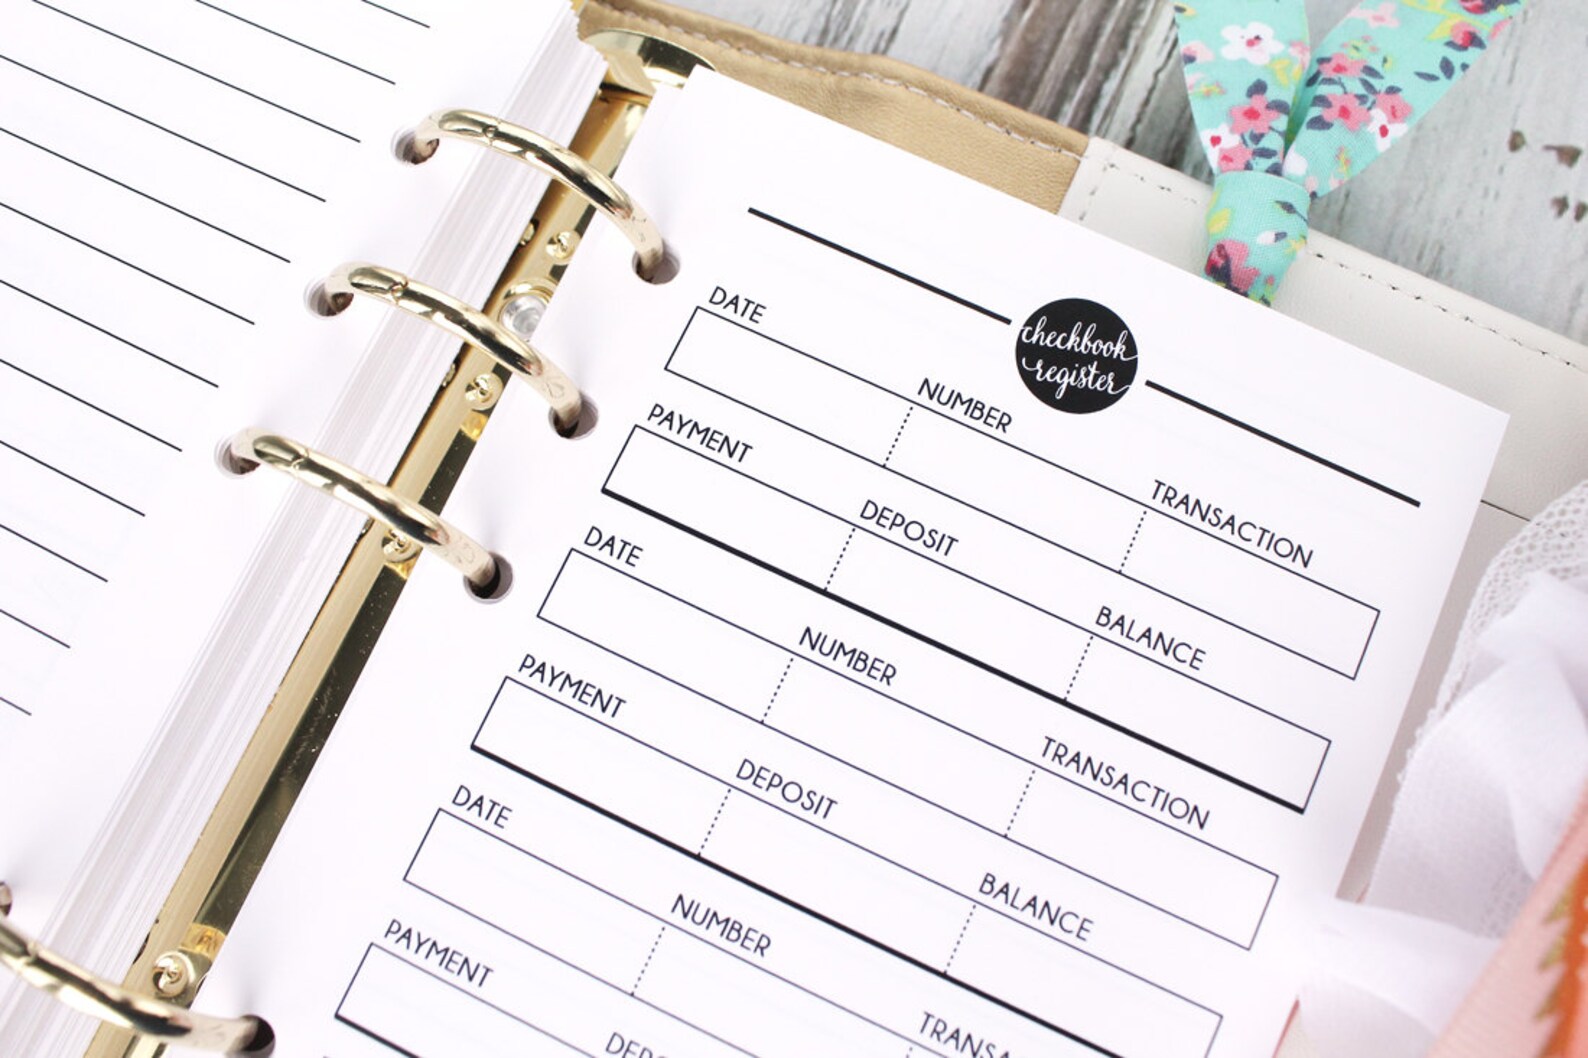 checkbook
register
DATE NUMBER TRANSACTION
PAYMENT DEPOSIT BALANCE
DATE NUMBER TRANSACTION
PAYMENT DEPOSIT BALANCE
DATE NUMBER
PAYMENT